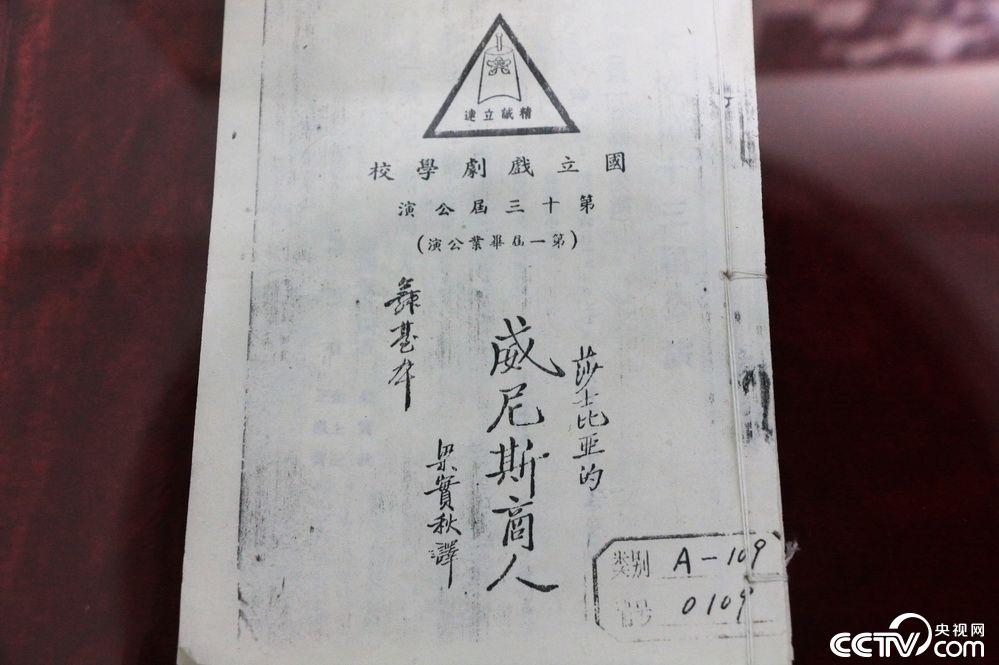 精誠立達
國立戲劇學校
第十三屆公演
(第一屆畢業公演)
莎士比亞的
威尼斯商人
梁實秋譯
舞臺本
类别 A-109
号 0109
CCTV.com 央视网